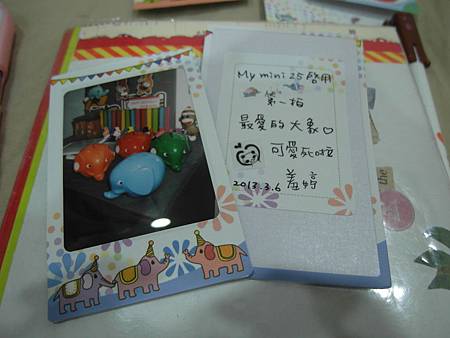 My mini 25 啟用
第一拍
最愛的大象♡
可愛死啦
2013.3.6
羞婷
the